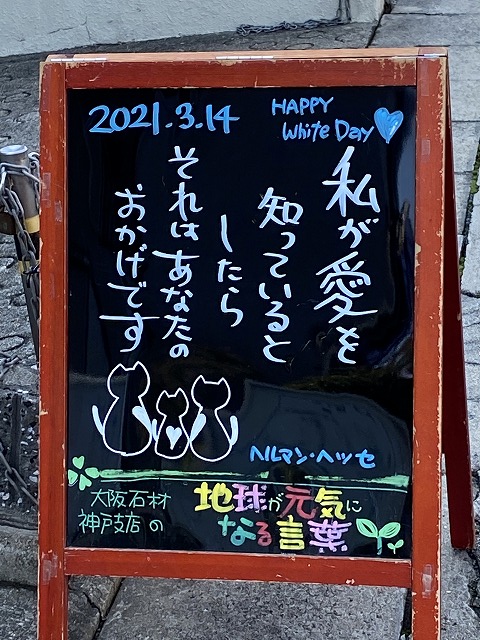 2021.3.14
HAPPY
White Day
私が愛を
知っていると
したら
それはあなたの
おかげです
ヘルマン・ヘッセ
大阪石材
神戸支店の
地球が元気に
なる言葉